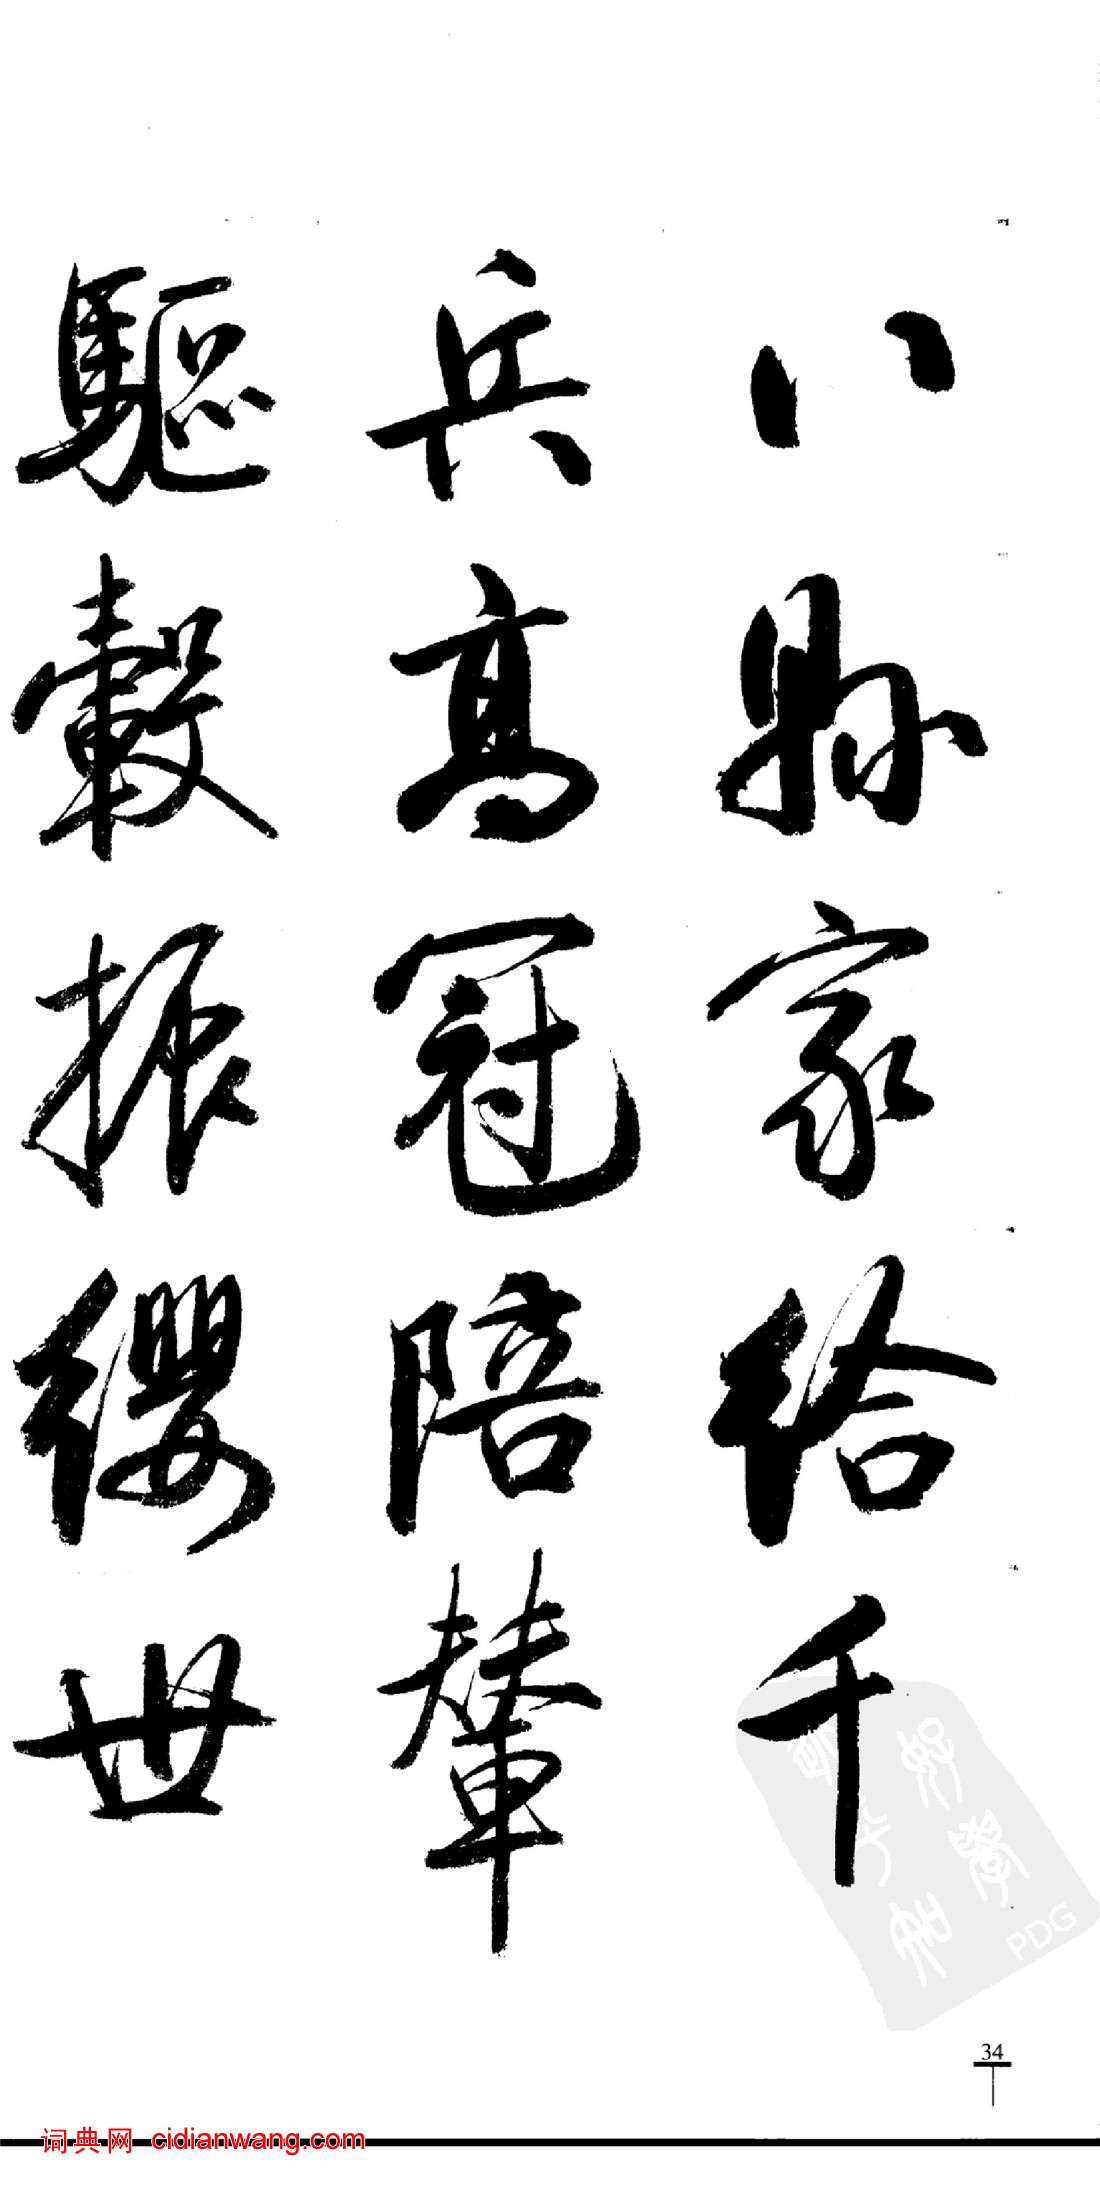 八縣家給千
兵高冠陪輦
驅轂振纓世
PDG
34
词典网 cidianwang.com